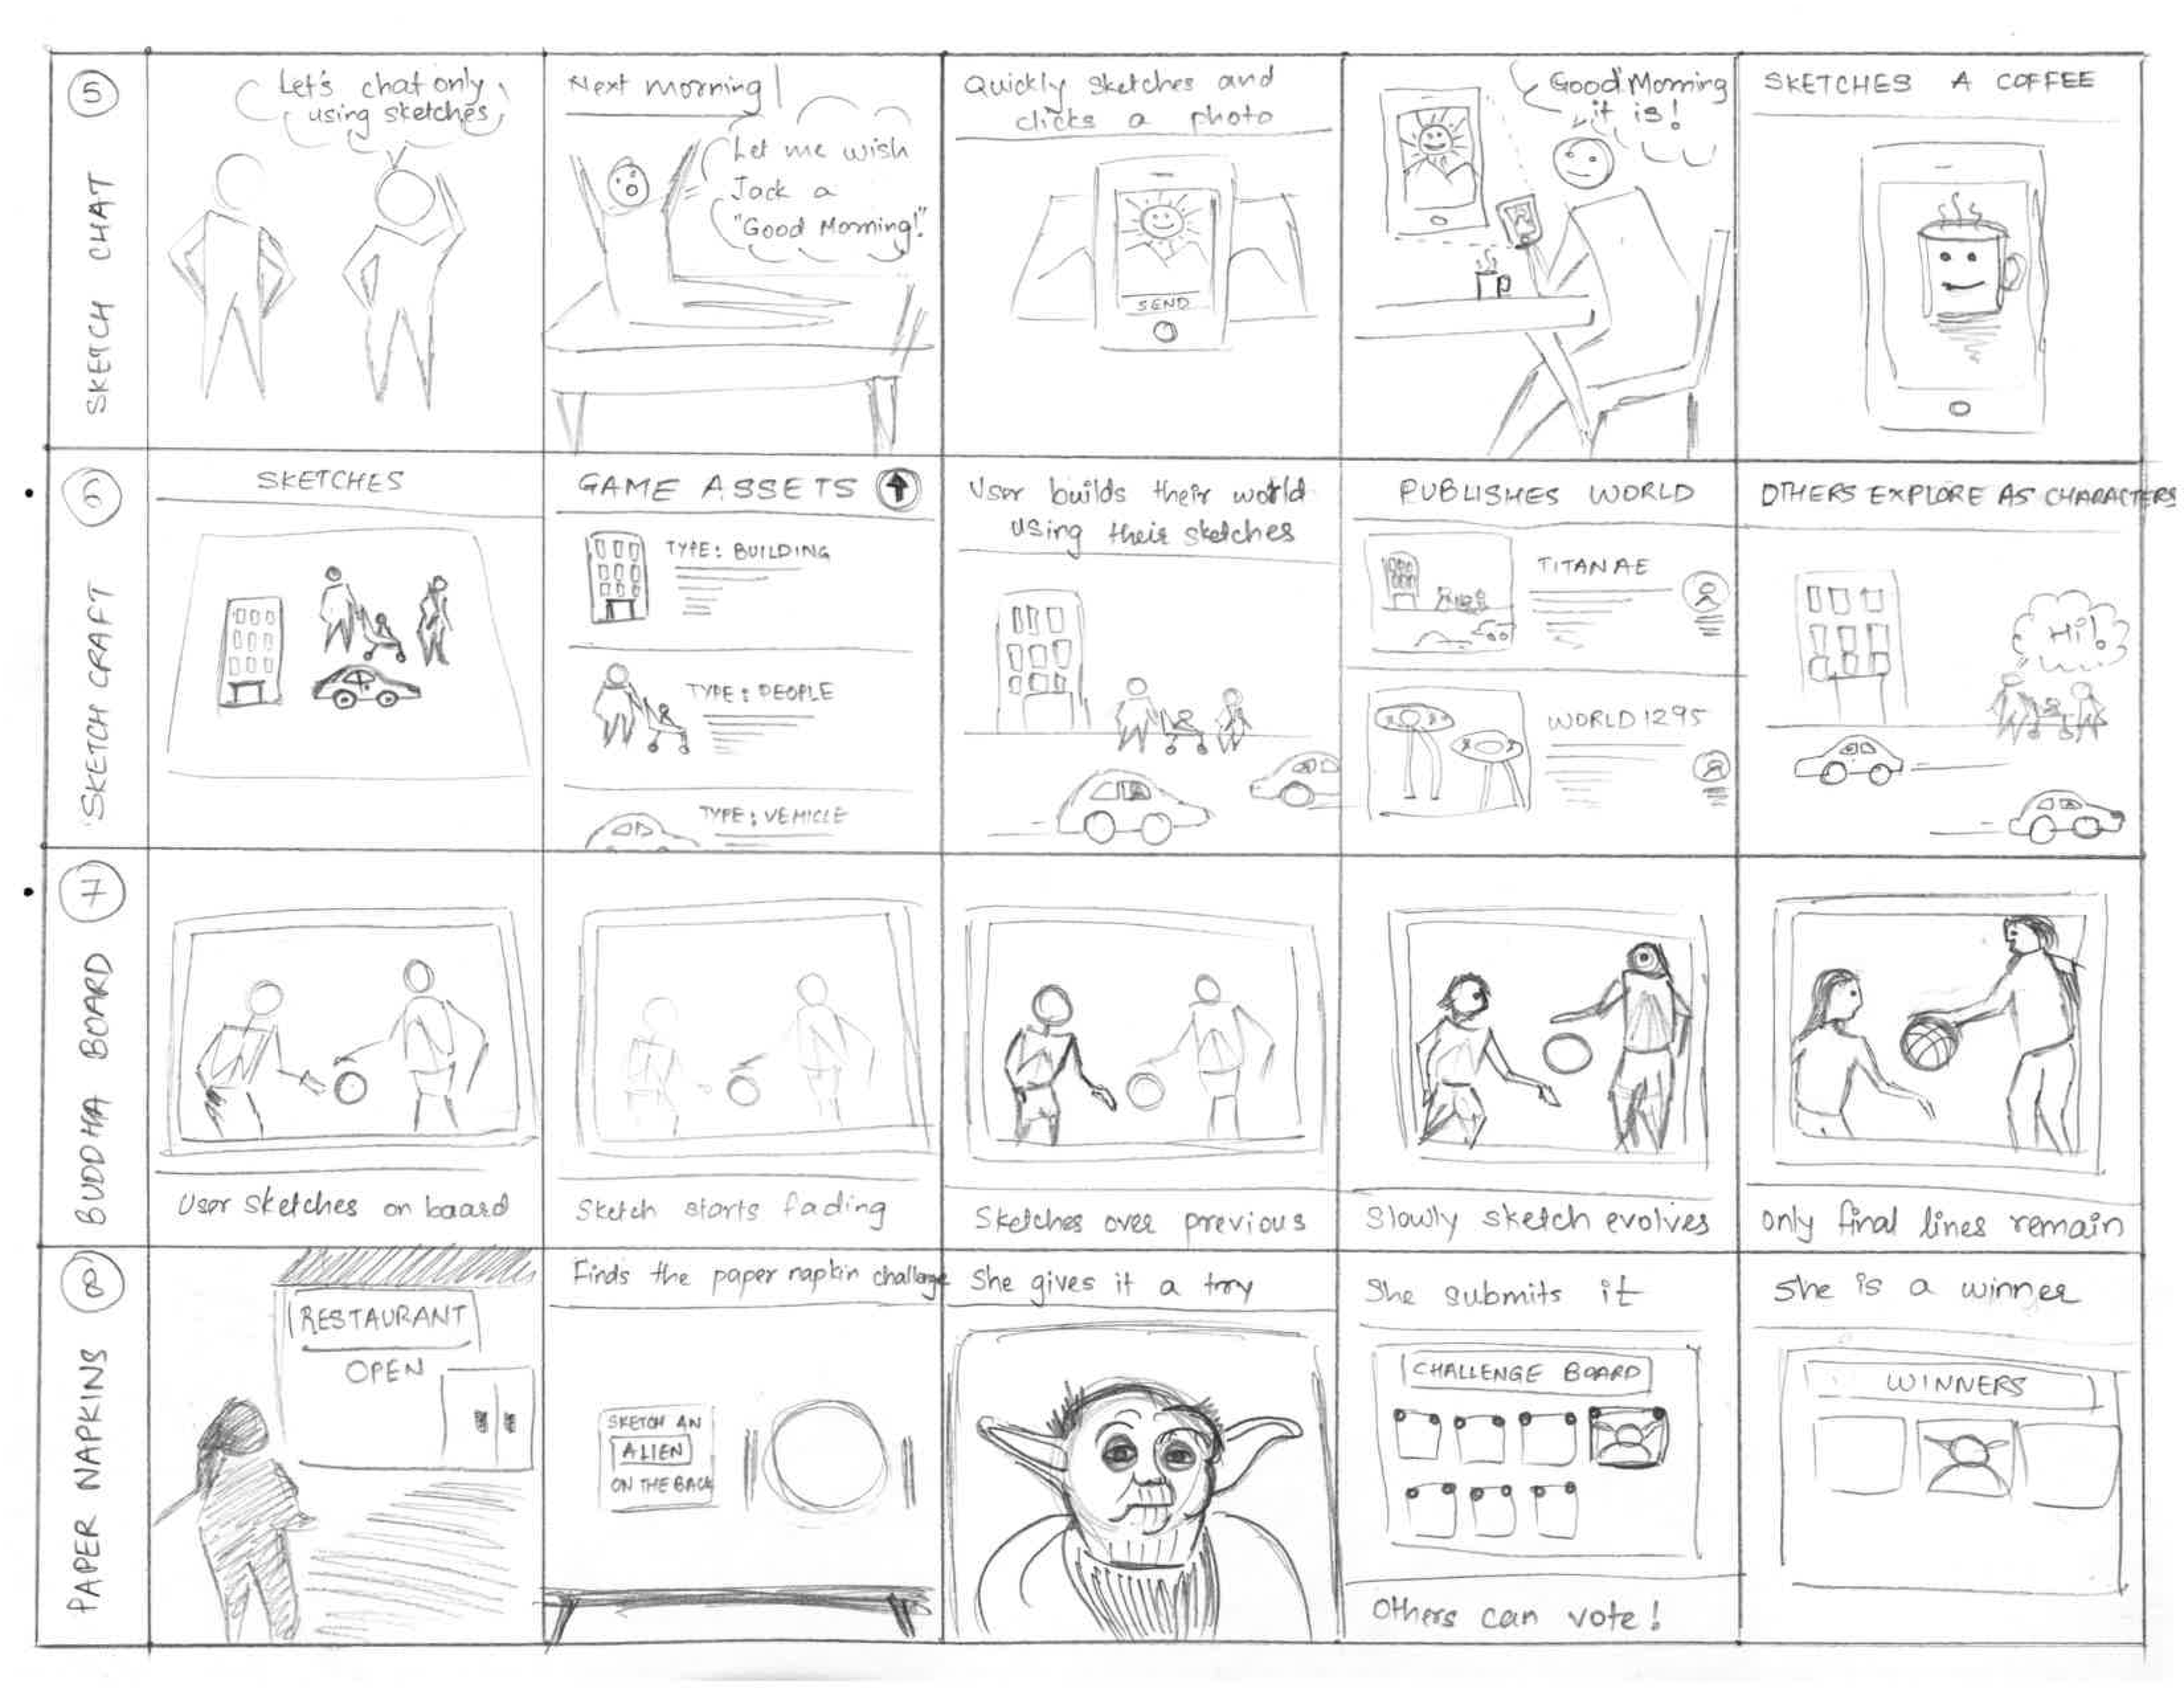 5
SKETCH CHAT
Let's chat only
using sketches
Next morning!
Let me wish
Jack a
"Good Morning!"
Quickly sketches and
clicks a photo
SEND
Good Morning
it is!
SKETCHES A COFFEE
6
SKETCH CRAFT
SKETCHES
GAME ASSETS
TYPE: BUILDING
TYPE: PEOPLE
TYPE: VEHICLE
User builds their world
using their sketches
PUBLISHES WORLD
TITANAE
WORLD 1295
OTHERS EXPLORE AS CHARACTERS
Hi!
7
BUDDHA BOARD
User sketches on board
Sketch starts fading
Sketches over previous
Slowly sketch evolves
Only final lines remain
8
PAPER NAPKINS
RESTAURANT
OPEN
Finds the paper napkin challenge
SKETCH AN
ALIEN
ON THE BACK
She gives it a try
She submits it
CHALLENGE BOARD
Others can vote!
She is a winner
WINNERS